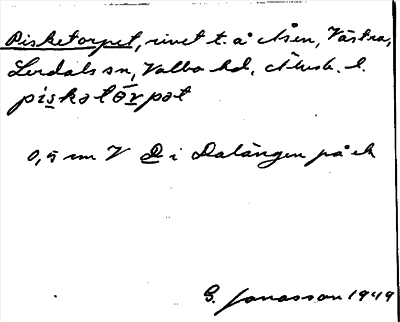 Pisketorpet, rivet t. å Åsen, Västra,
Lerdals sn, Valbo hd, Älvsb. l.
piskətɵrpət
0,5 mm V D i Dalängen på ek
G. Jonasson 1949